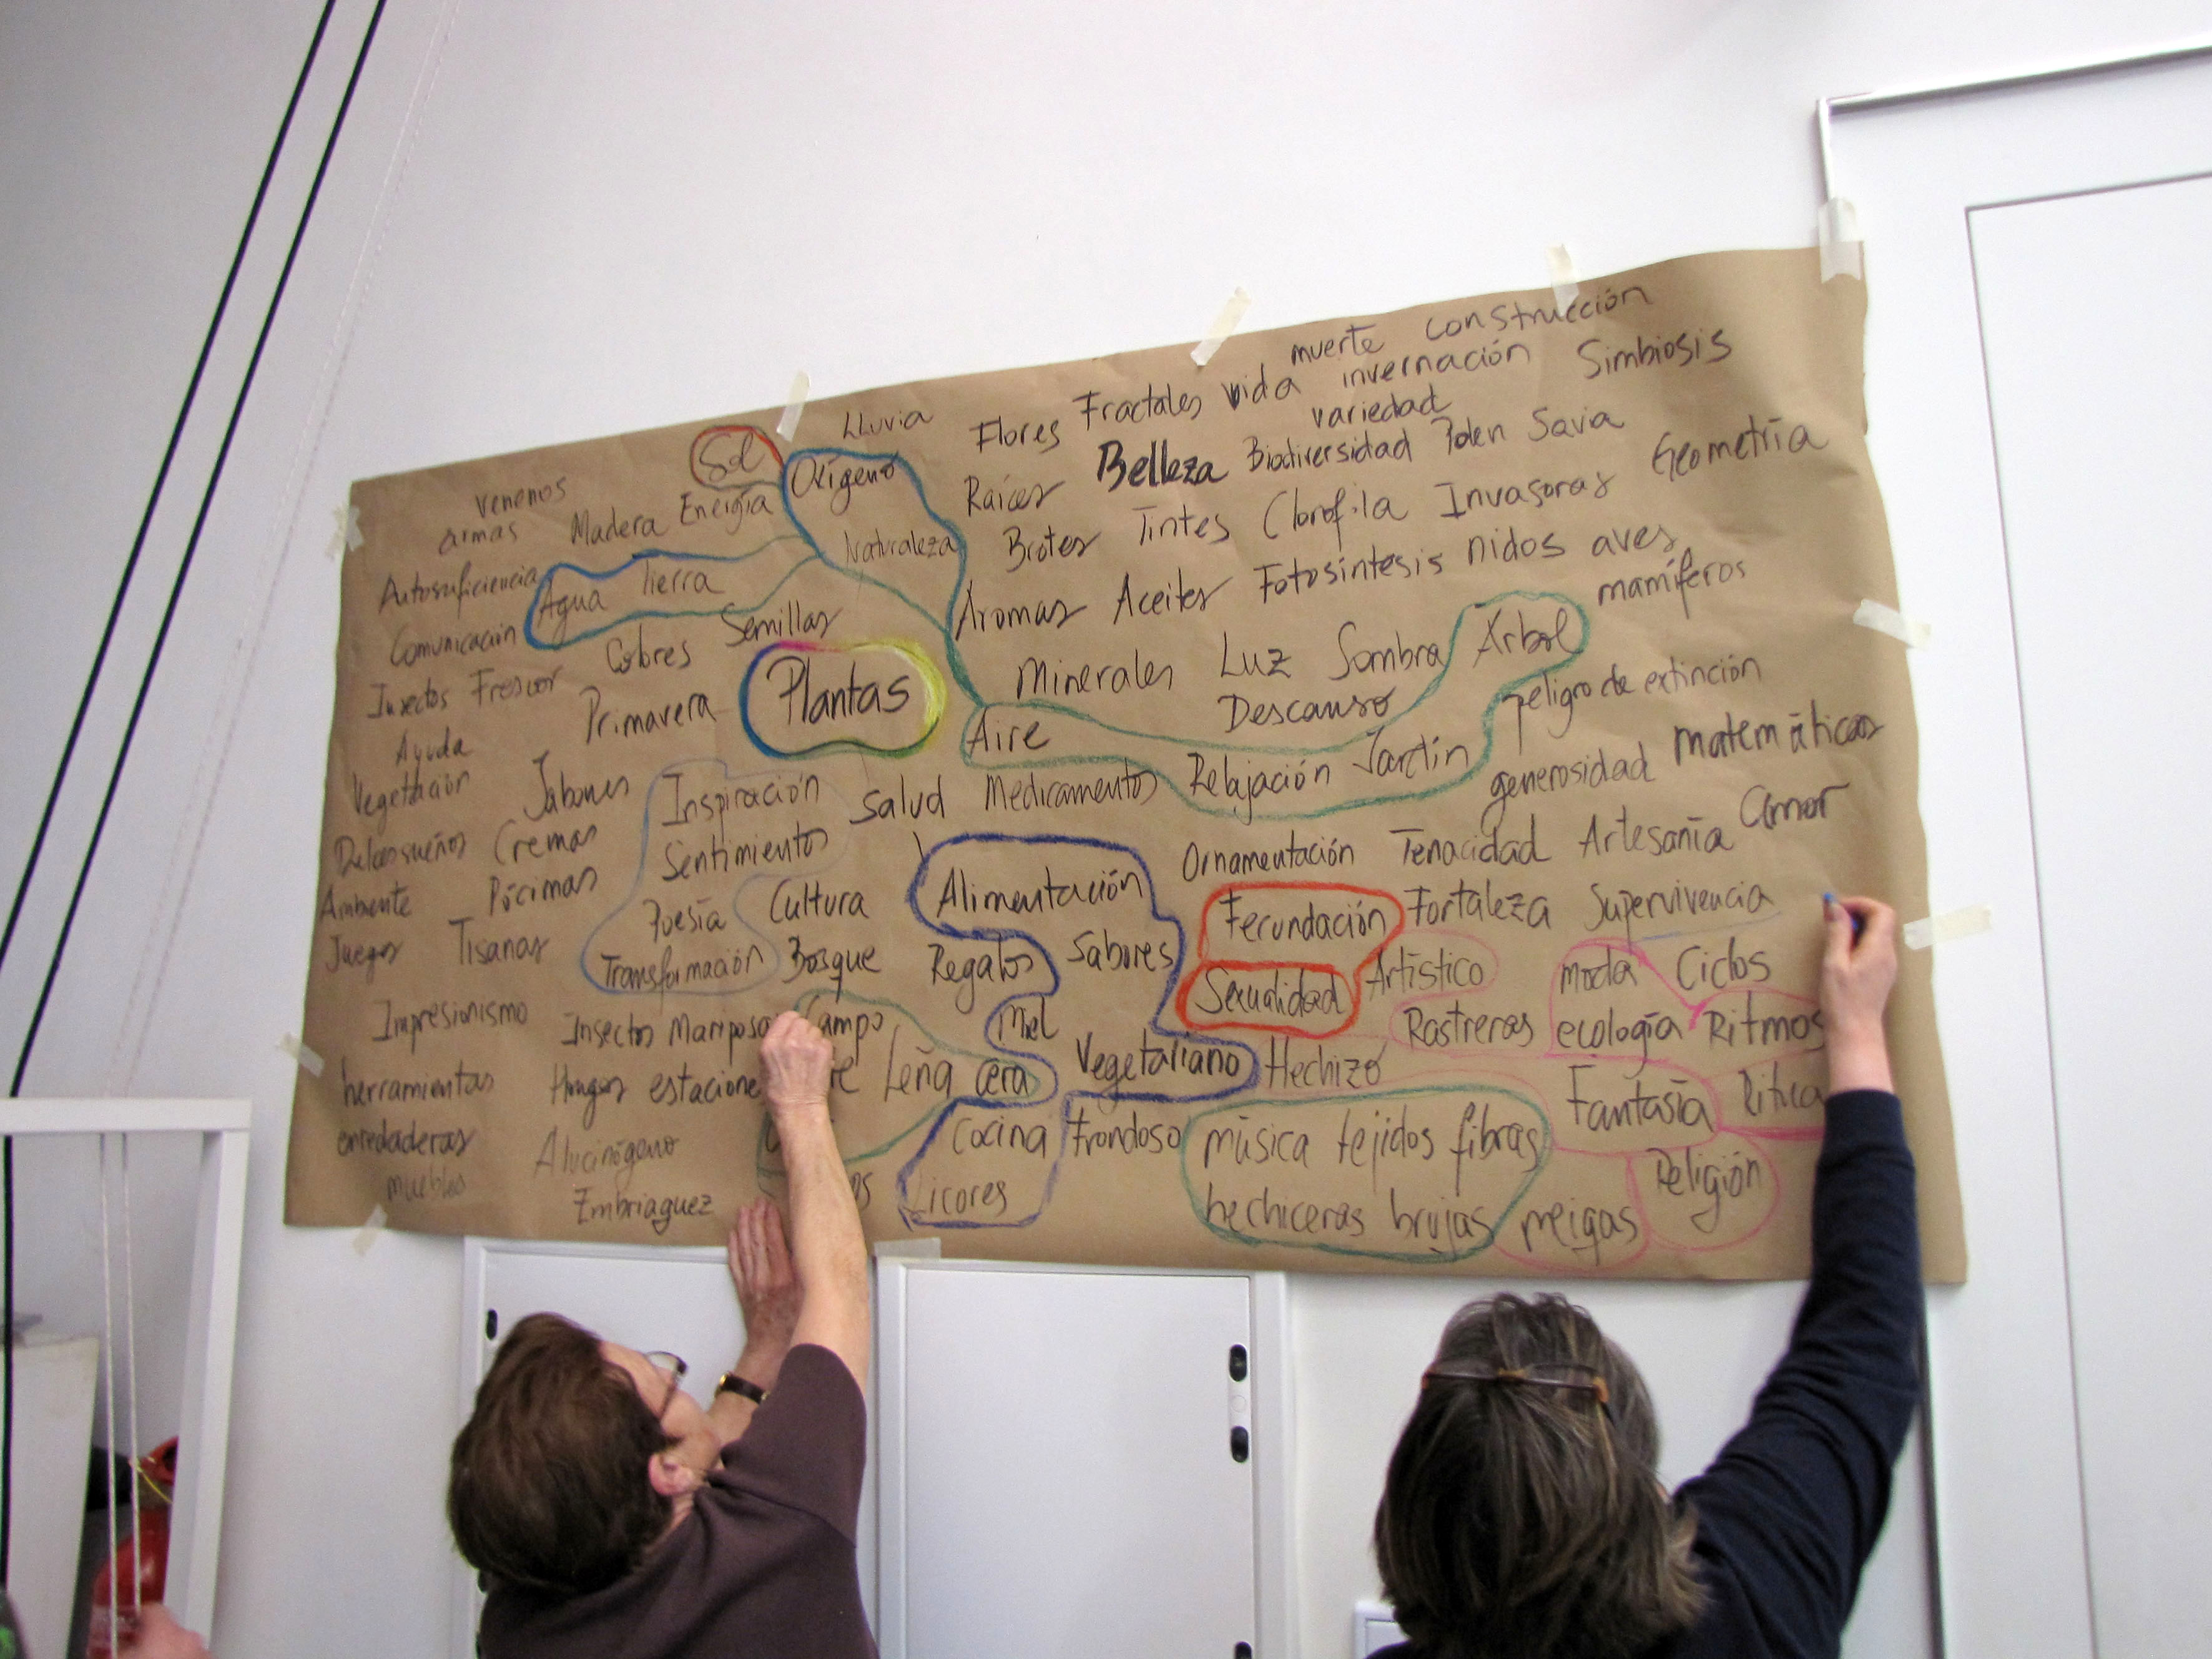 muerte construcción
Lluvia Flores Fractales vida invernación Simbiosis
variedad
Sol Oxígeno Raíces Belleza Biodiversidad Polen Savia Geometría
venenos
armas Madera Energía Naturaleza Brotes Tintes Clorofila Invasoras
Autosuficiencia Agua Tierra Aromas Aceites Fotosíntesis nidos aves
mamíferos
Comunicación Semillas
Insectos Frescor Plantas Minerales Luz Sombra Árbol
Primavera Descanso peligro de extinción
Ayuda Aire
Vegetación Jabones Inspiración Salud Medicamentos Relajación Jardín generosidad matemáticas
Cremas Sentimientos Ornamentación Tenacidad Artesanía Amor
Ambiente Pócimas Poesía Cultura Alimentación Fecundación Fortaleza Supervivencia
Juegos Tisanas Transformación Bosque Regalos Sabores Sexualidad Artístico moda Ciclos
Impresionismo Insectos Mariposa Campo Miel Rastreras ecología Ritmos
herramientas Hongos estacione Leña cera Vegetariano Hechizo Fantasía
enredaderas Alucinógeno Cocina Frondoso música tejidos fibras
muebles Religión
Embriaguez Licores hechiceras brujas meigas